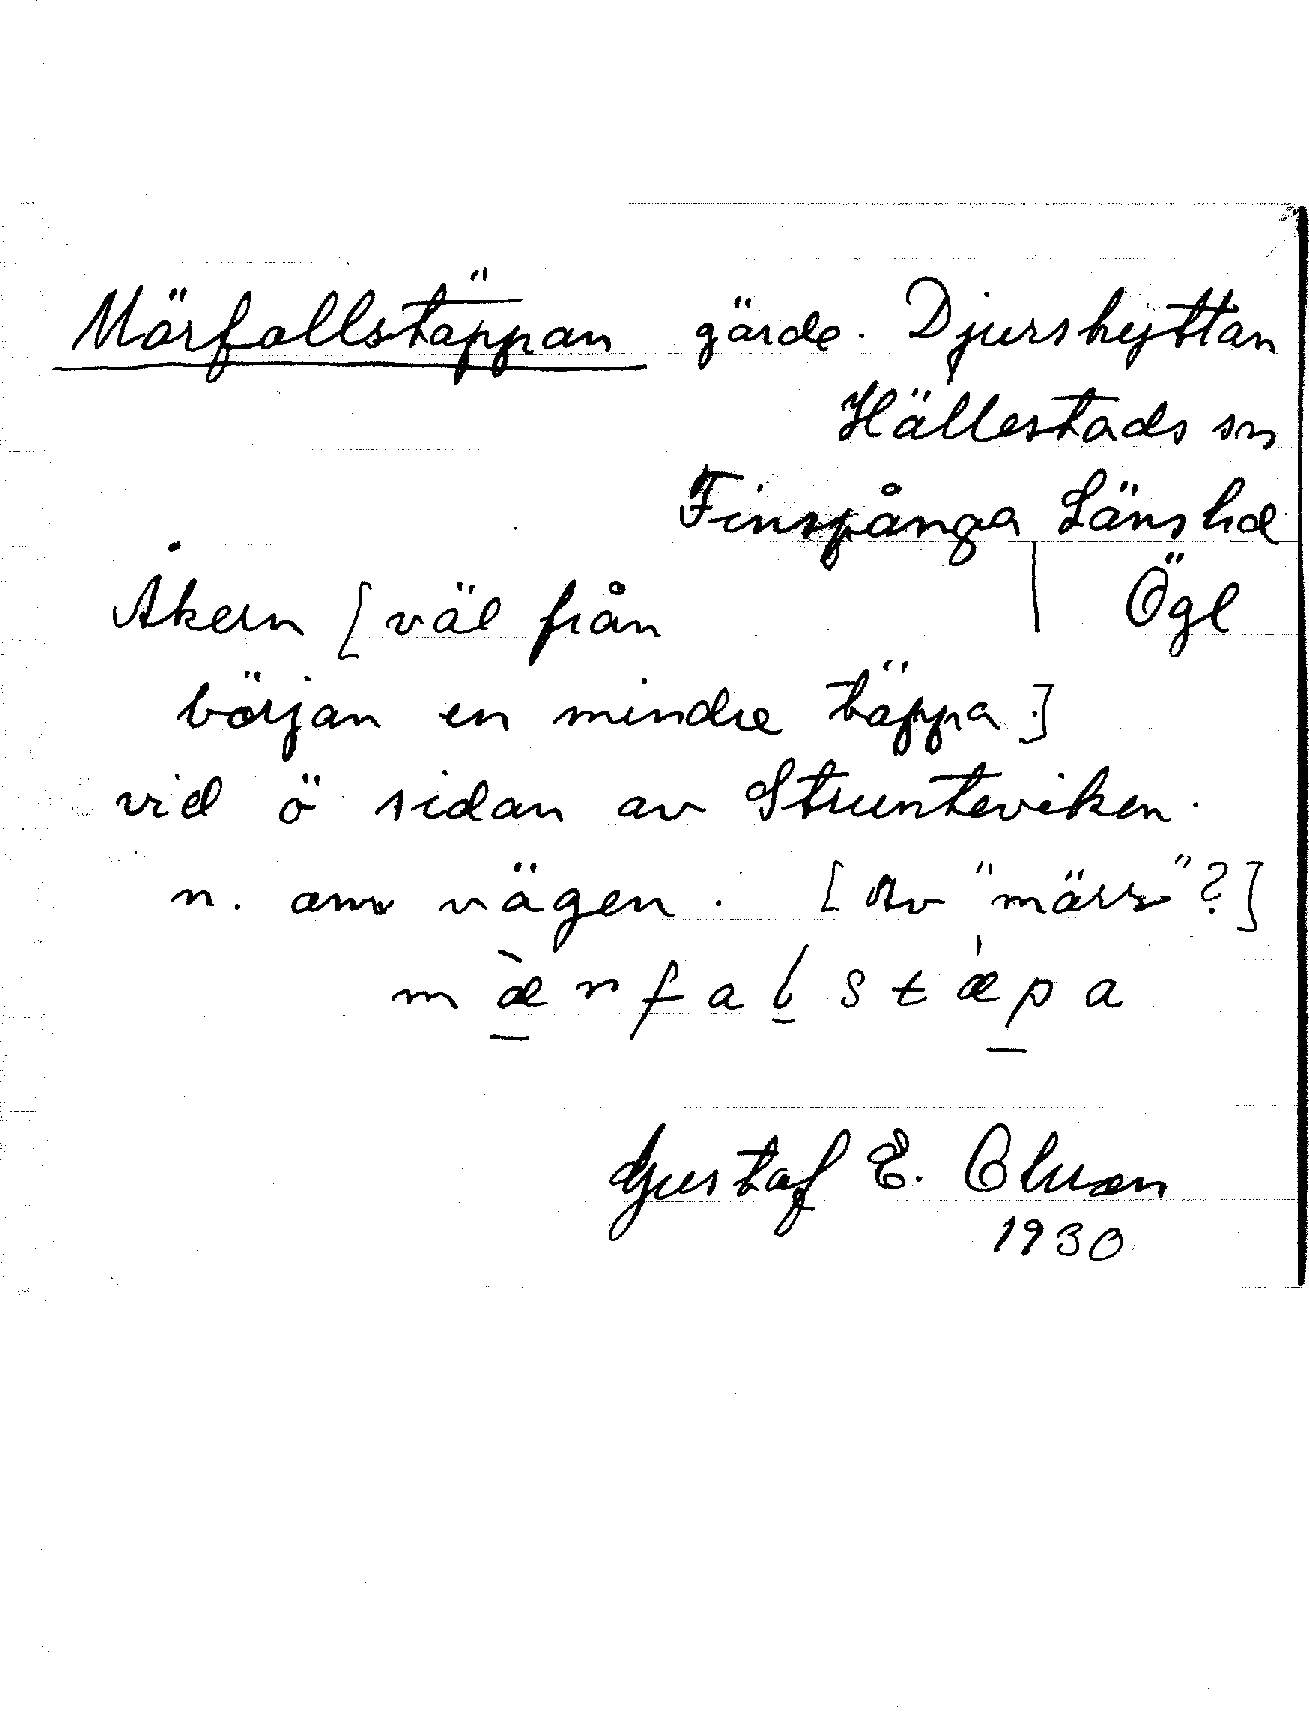 Märfallstäppan gärde. Djurshyttan
Hällestads sn
Finspånga Länshd
Åkern [väl från Ögl
början en mindre täppa.]
vid ö sidan av Strunteviken.
n. om vägen. [Av "märr"?]
mæ̀rfalstǽpa
Gustaf E. Olsson
1930